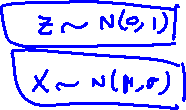 Z ~ N(0, 1)
X ~ N(μ, σ)